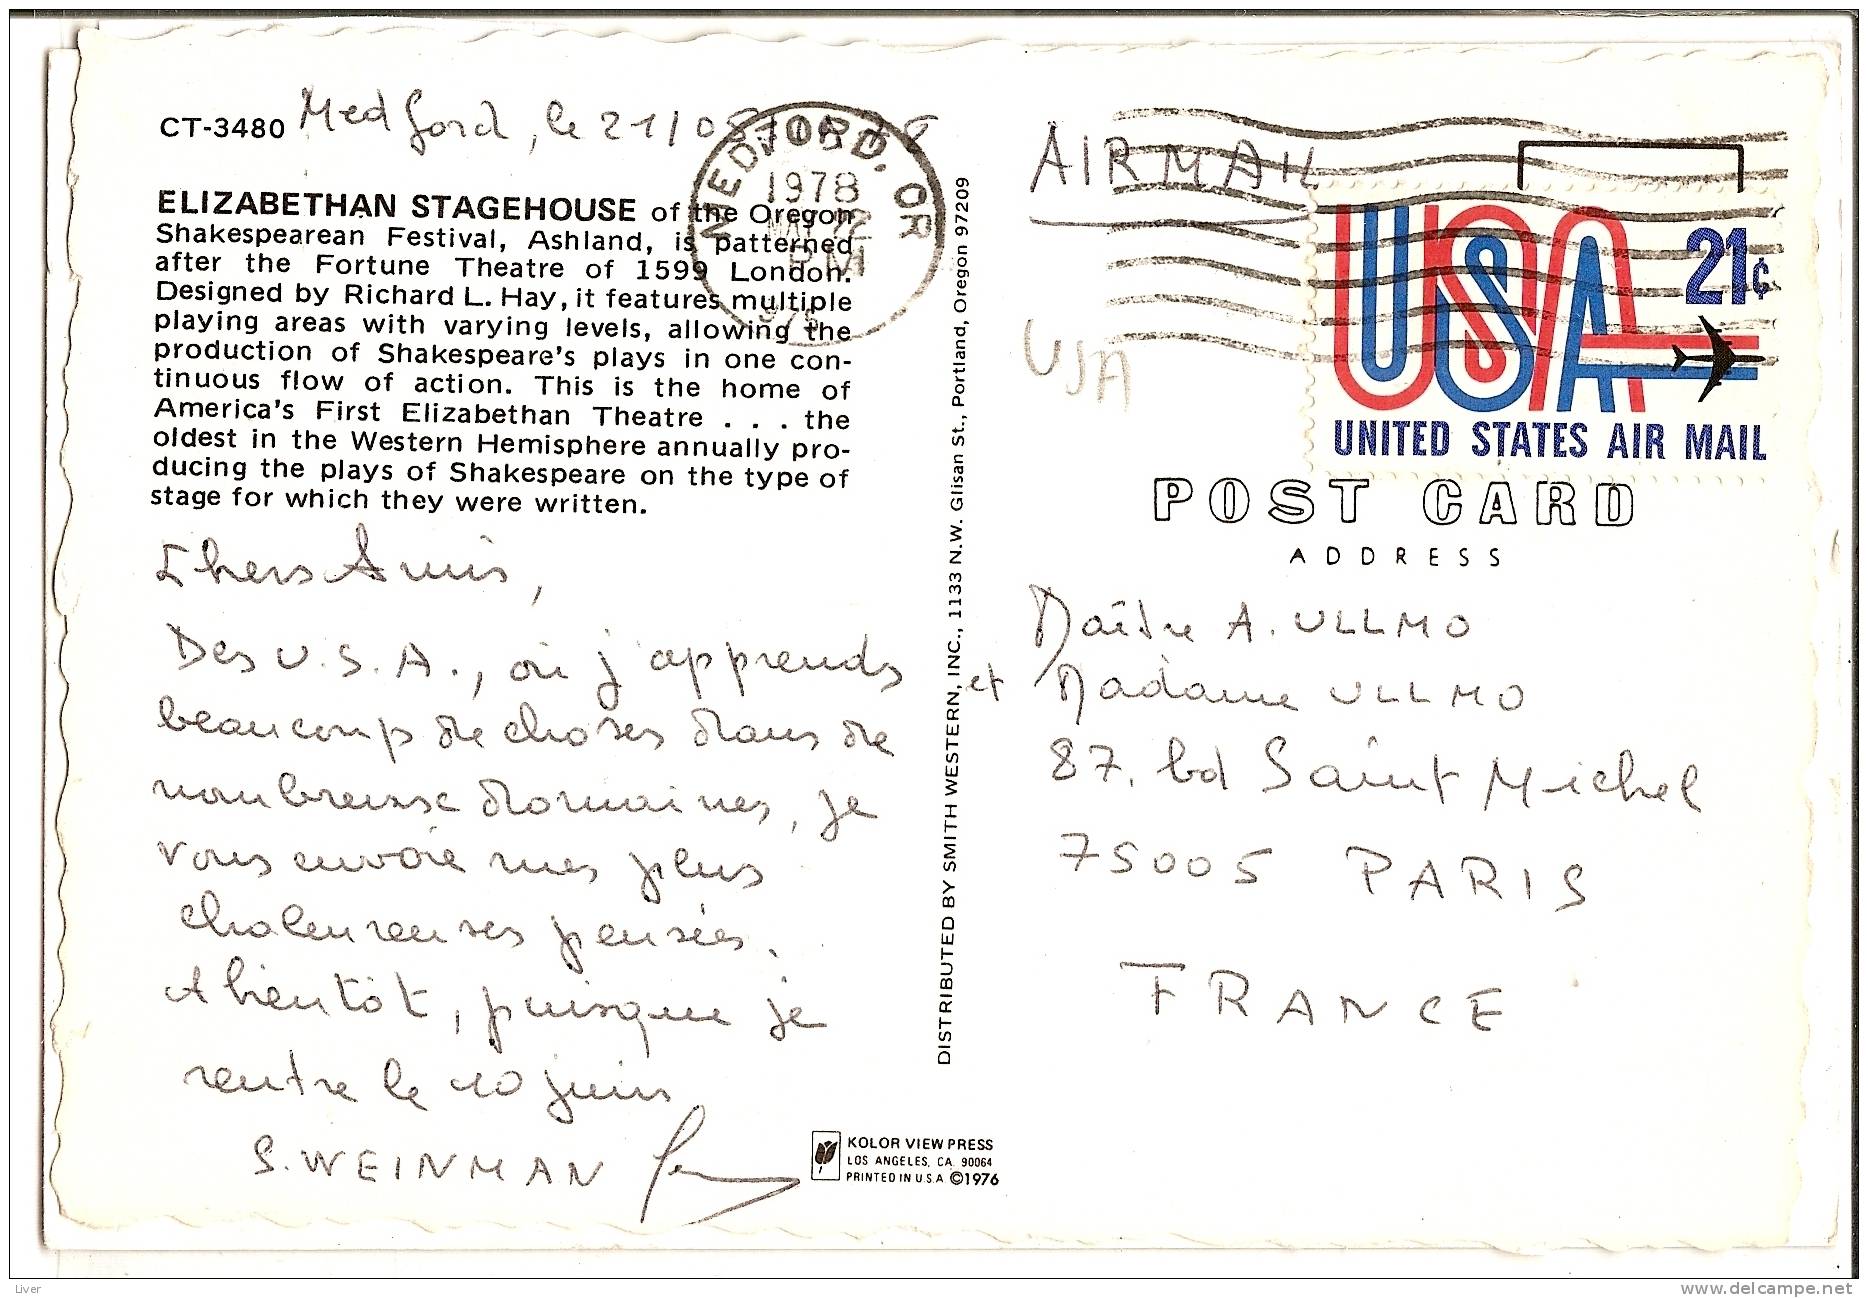 CT-3480 Medford, le 21/05/78
ELIZABETHAN STAGEHOUSE of the Oregon
Shakespearean Festival, Ashland, is patterned
after the Fortune Theatre of 1599 London.
Designed by Richard L. Hay, it features multiple
playing areas with varying levels, allowing the
production of Shakespeare's plays in one con-
tinuous flow of action. This is the home of
America's First Elizabethan Theatre . . . the
oldest in the Western Hemisphere annually pro-
ducing the plays of Shakespeare on the type of
stage for which they were written.
Chers Amis,
Des U.S.A., où j'apprends
beaucoup de choses dans de
nombreuse domaines, je
vous envoie mes plus
chaleureuses pensées.
A bientôt, puisque je
rentre le 10 juin
S. WEINMAN
MEDFORD, OR
1978
MAY 22
PM
DISTRIBUTED BY SMITH WESTERN, INC., 1133 N.W. Glisan St., Portland, Oregon 97209
KOLOR VIEW PRESS
LOS ANGELES, CA 90064
PRINTED IN U.S.A ©1976
AIR MAIL
USA
USA 21¢
UNITED STATES AIR MAIL
POST CARD
ADDRESS
Maître A. ULLMO
et Madame ULLMO
87, bd Saint Michel
75005 PARIS
FRANCE
Liver
www.delcampe.net